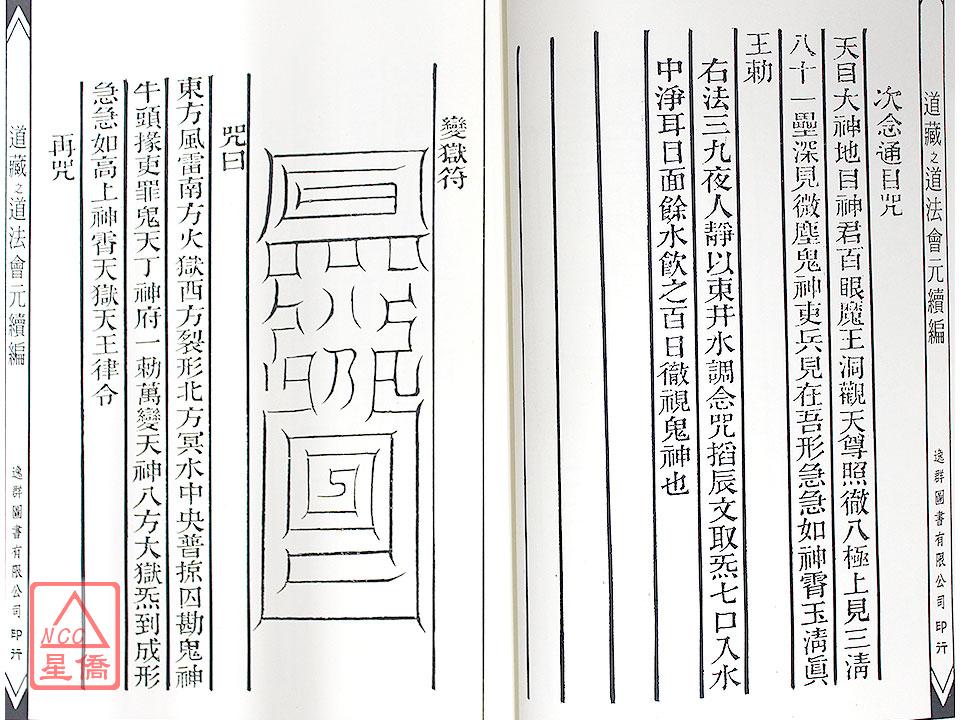 道藏之道法會元續編
逸群圖書有限公司 印行
次念通目咒
天目大神地目神君百眼魔王洞觀天尊照徹八極上見三淸
八十一壘深見微塵鬼神吏兵見在吾形急急如神霄玉淸眞
王勑
右法三九夜人靜以東井水調念咒搯辰文取炁七口入水
中淨耳目面餘水飮之百日徹視鬼神也
變獄符
咒曰
東方風雷南方火獄西方裂形北方冥水中央普掠囚勘鬼神
牛頭掾吏罪鬼天丁神府一勑萬變天神八方大獄炁到成形
急急如高上神霄天獄天王律令
再咒
道藏之道法會元續編
逸群圖書有限公司 印行
NCC
星僑